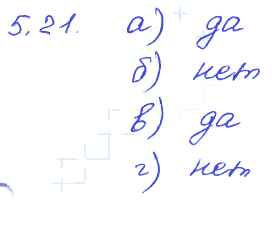 5.21. а) да
б) нет
в) да
г) нет